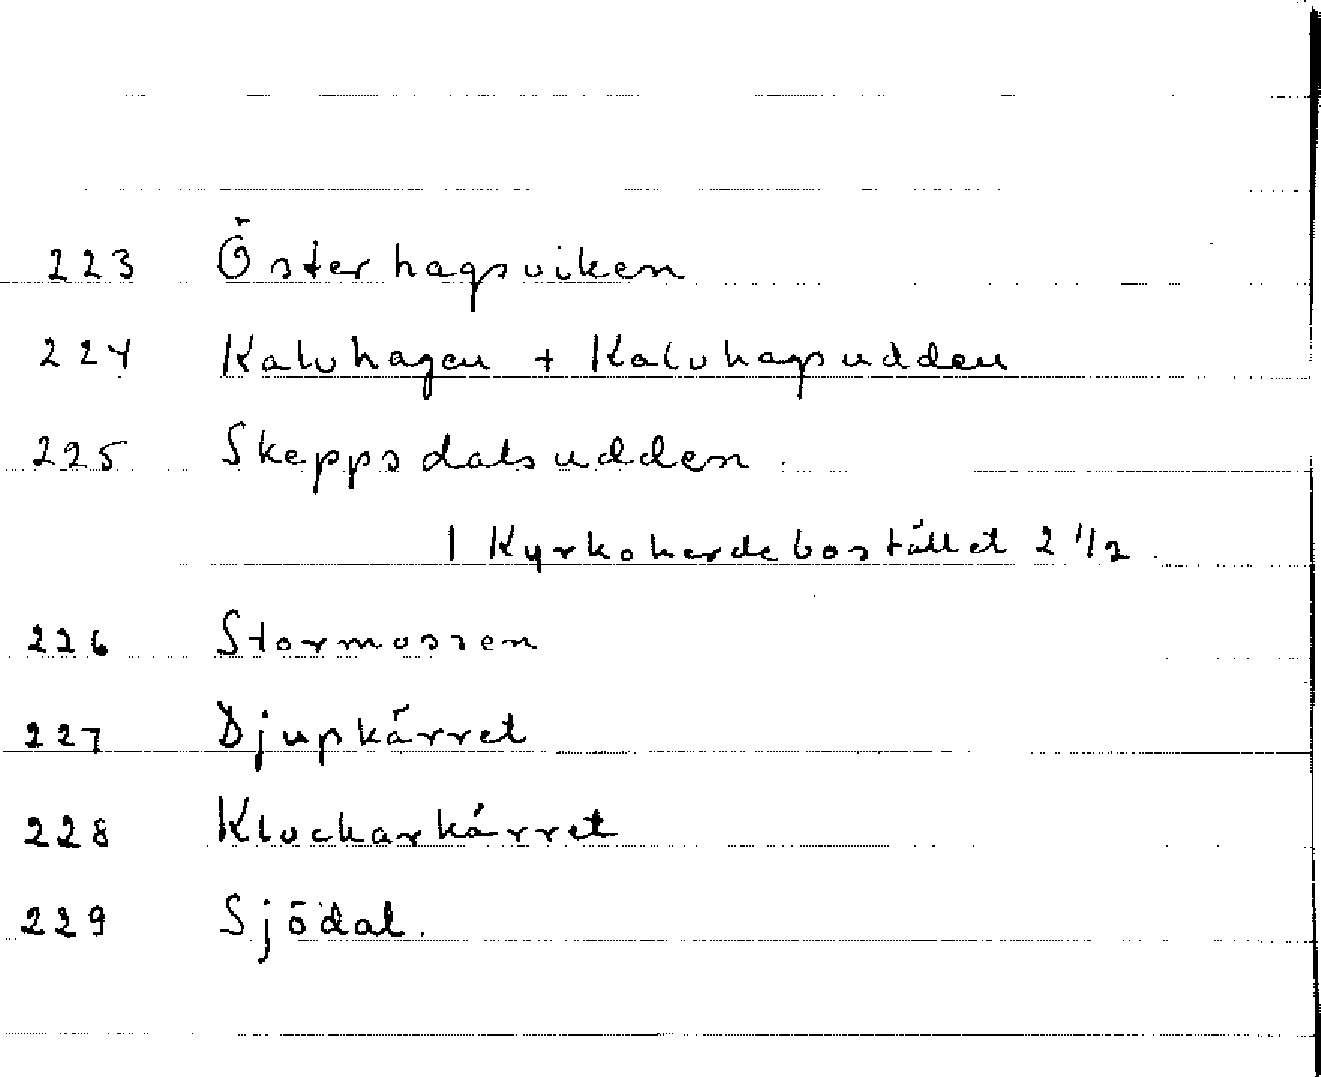 223 Österhagsviken
224 Kalvhagen + Kalvhagsudden
225 Skeppsdalsudden.
1 Kyrkoherdebostället 2 1/2.
226 Stormossen
227 Djupkärret
228 Klockarkärret
229 Sjödal.